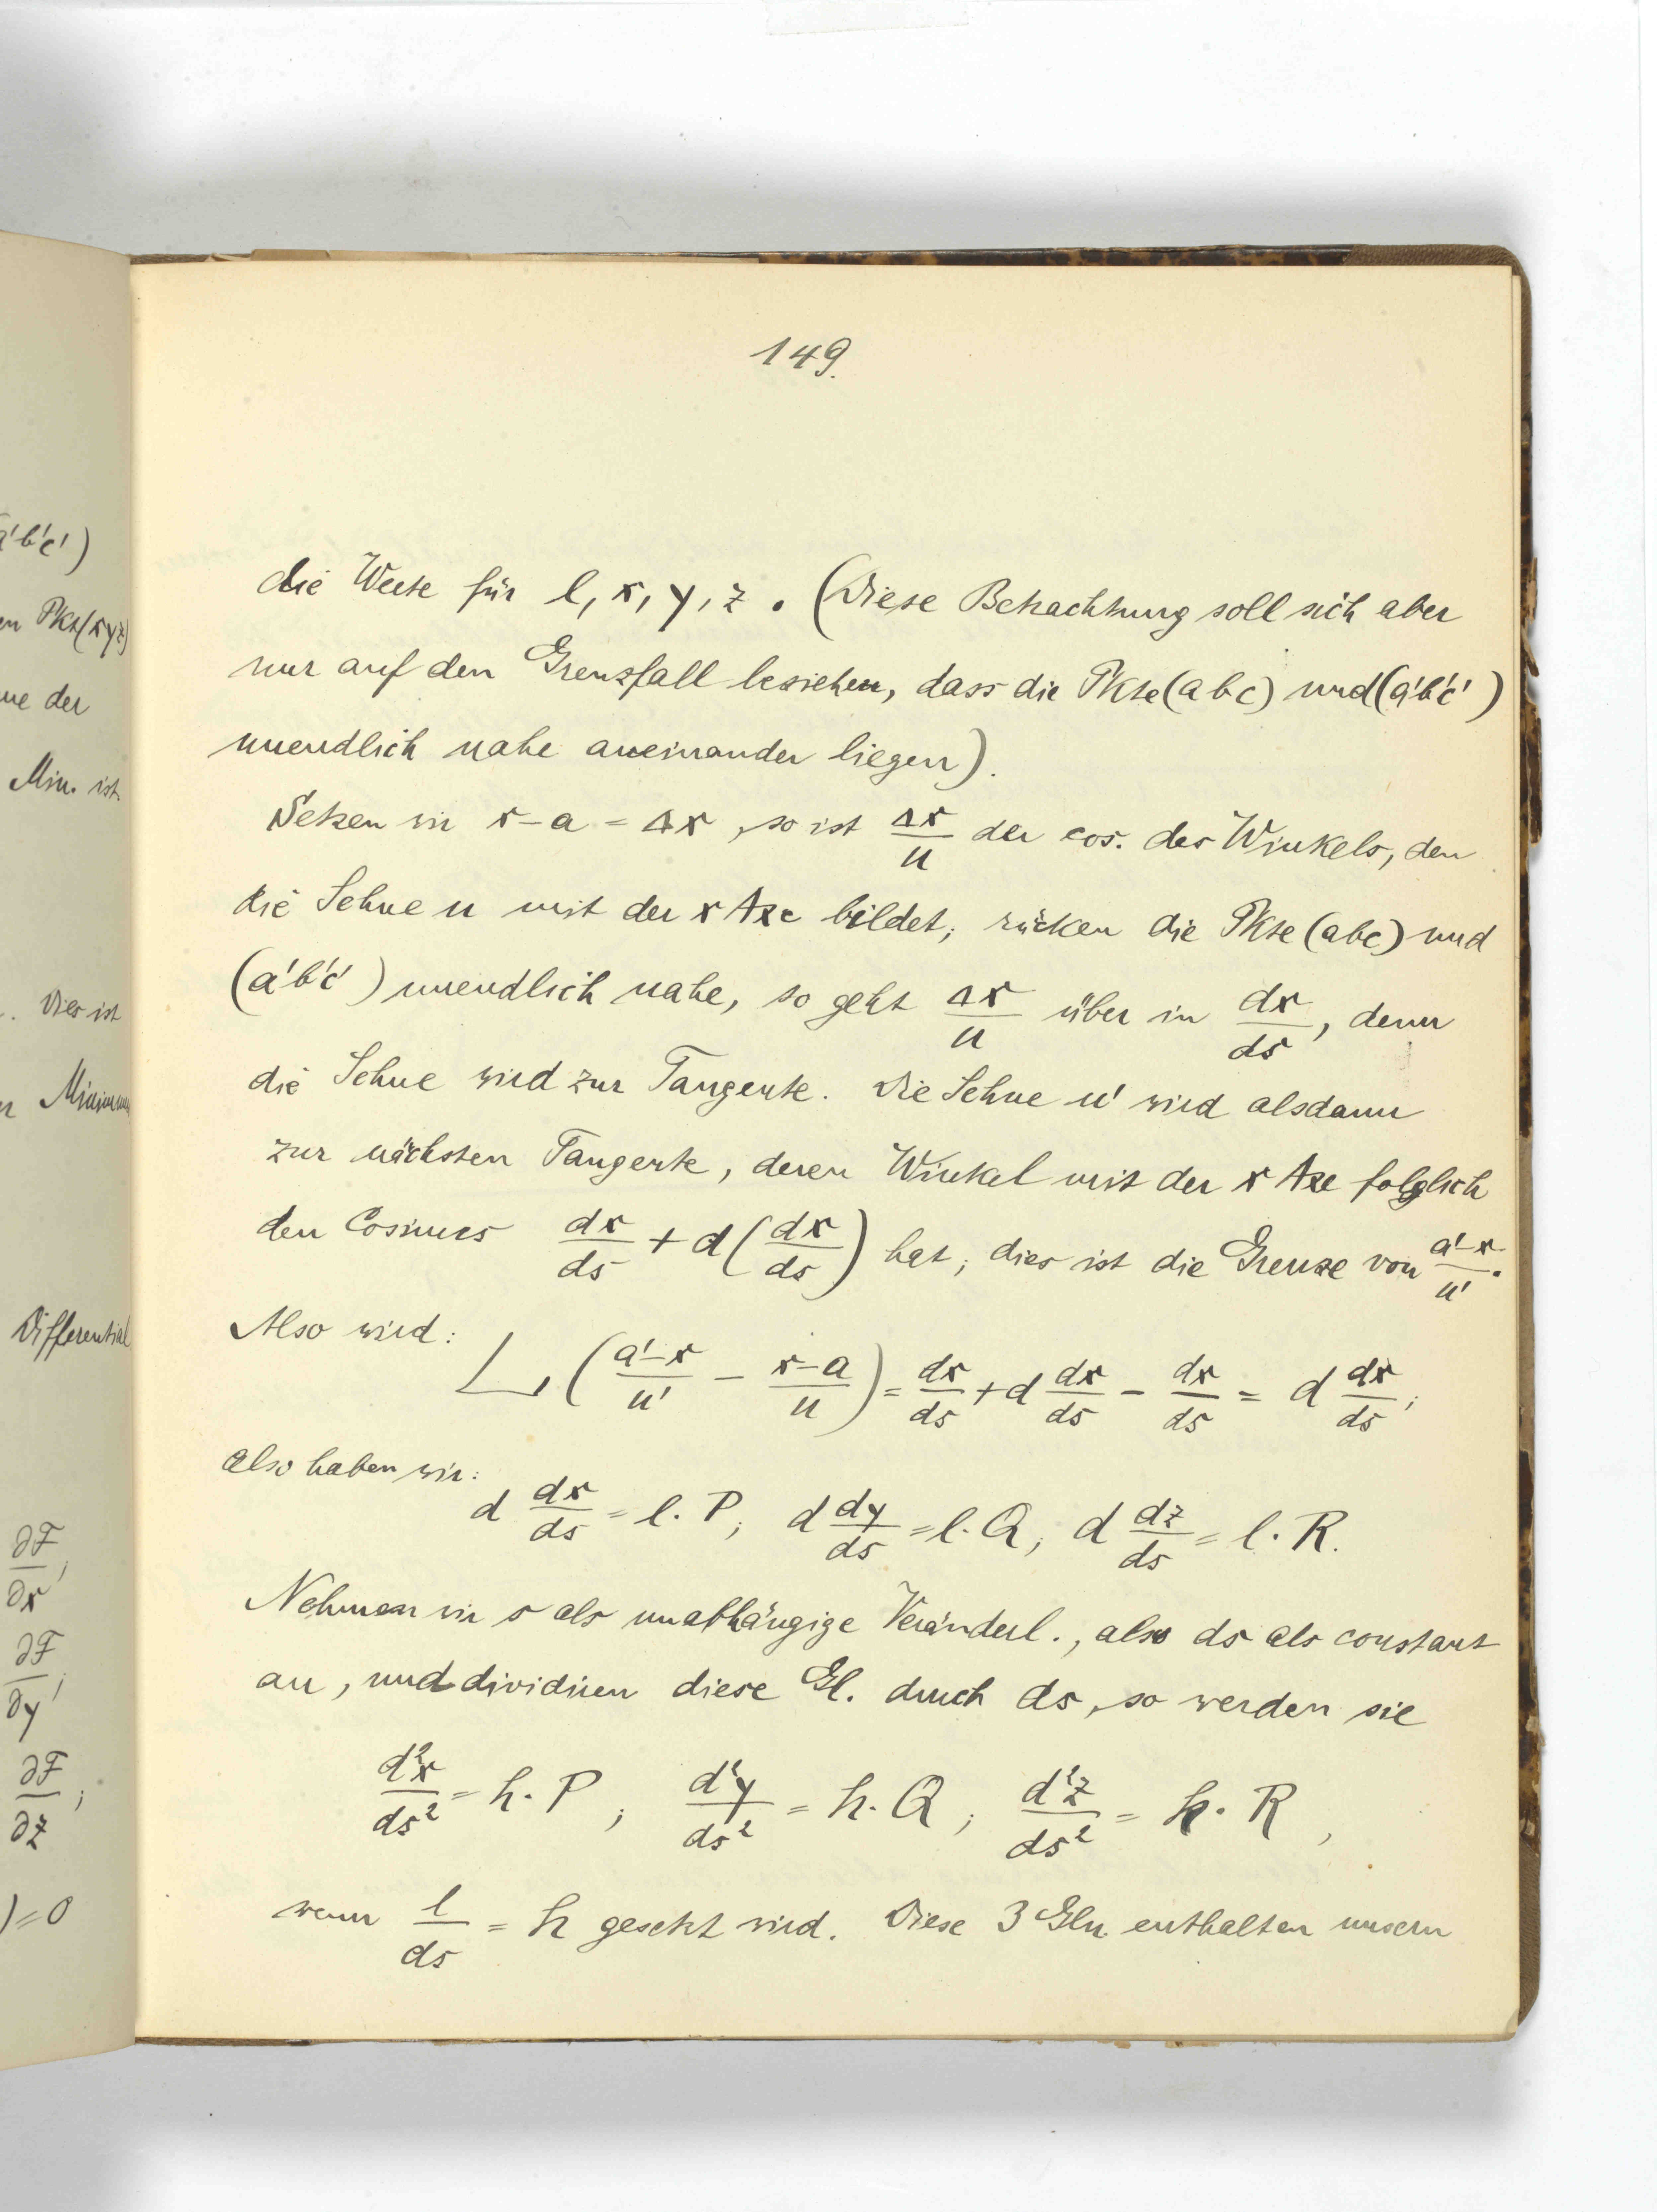 149.
die Werte für l, x, y, z. (Diese Betrachtung soll sich aber
nur auf den Grenzfall beziehen, dass die Pkte (a b c) und (a' b' c')
unendlich nahe aneinander liegen).
Setzen wir x - a = Δx, so ist Δx/u der cos. des Winkels, den
die Sehne u mit der x Axe bildet; rücken die Pkte (abc) und
(a' b' c') unendlich nahe, so geht Δx/u über in dx/ds, denn
die Sehne wird zur Tangente. Die Sehne u' wird alsdann
zur nächsten Tangente, deren Winkel mit der x Axe folglich
den Cosinus dx/ds + d(dx/ds) hat; dies ist die Grenze von a'-x/u'.
Also wird:
L, (a'-x/u' - x-a/u) = dx/ds + d dx/ds - dx/ds = d dx/ds;
also haben wir:
d dx/ds = l. P; d dy/ds = l. Q; d dz/ds = l. R.
Nehmen wir s als unabhängige Veränderl., also ds als constant
an, und dividiren diese Gl. durch ds, so werden sie
d²x/ds² = h. P; d²y/ds² = h. Q; d²z/ds² = h. R,
wenn l/ds = h gesetzt wird. Diese 3 Gln. enthalten unsern
a' b' c')
Pkt (x y z)
der
Min. ist.
. Dies ist
Minimum
Differential
∂F/∂x;
∂F/∂y;
∂F/∂z;
) = 0